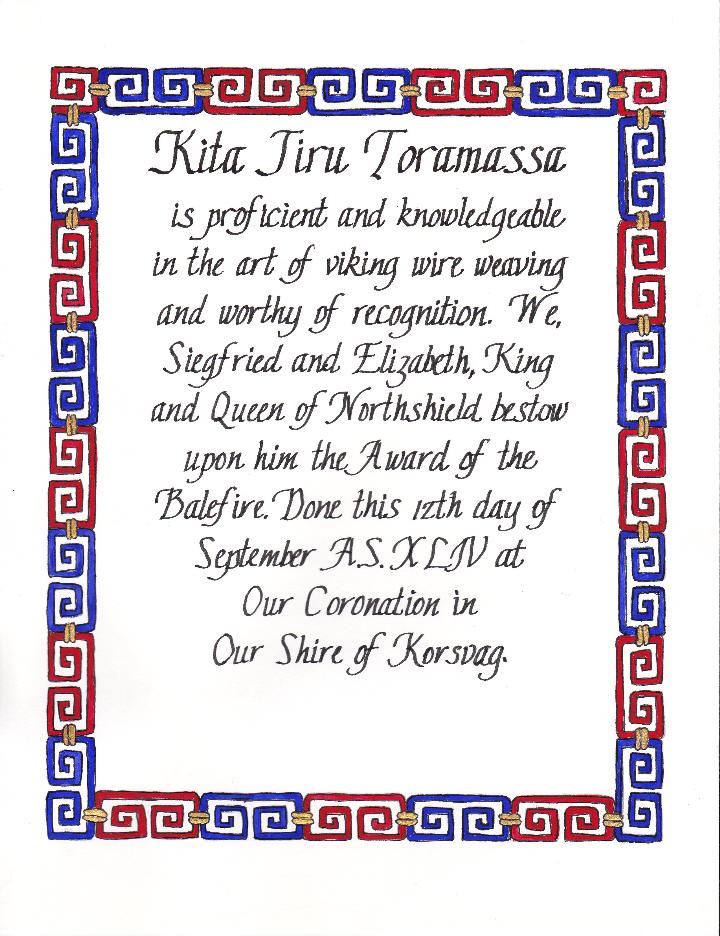 Kita Jiru Toramassa
is proficient and knowledgeable
in the art of viking wire weaving
and worthy of recognition. We,
Siegfried and Elizabeth, King
and Queen of Northshield bestow
upon him the Award of the
Balefire. Done this 12th day of
September A.S. XLIV at
Our Coronation in
Our Shire of Korsvag.